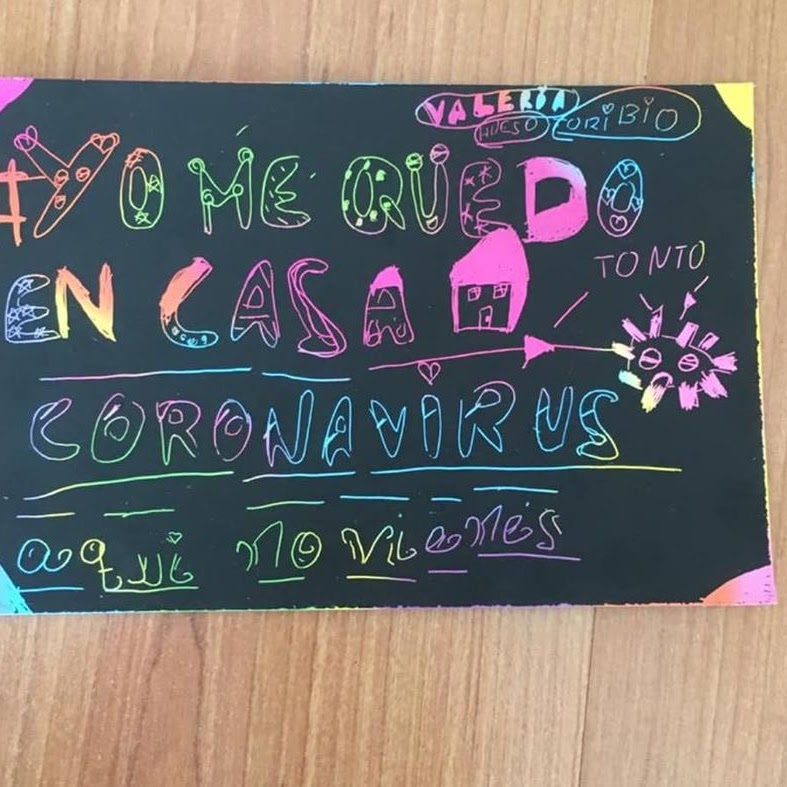 VALERIA
HUESO TORIBIO
#YO ME QUEDO
EN CASA
TONTO
CORONAVIRUS
aqui no vienes